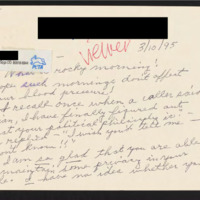 viewer
3/10/95
rocky morning!
such mornings don't affect
your blood pressure!
I recall once when a caller said
I have finally figured out
your political philosophy is
replied - "I wish you'd tell me -
know"!!
I am so glad that you are able
some privacy in your
I have no idea whether you